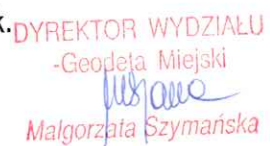 k.
DYREKTOR WYDZIAŁU
-Geodeta Miejski
Małgorzata Szymańska